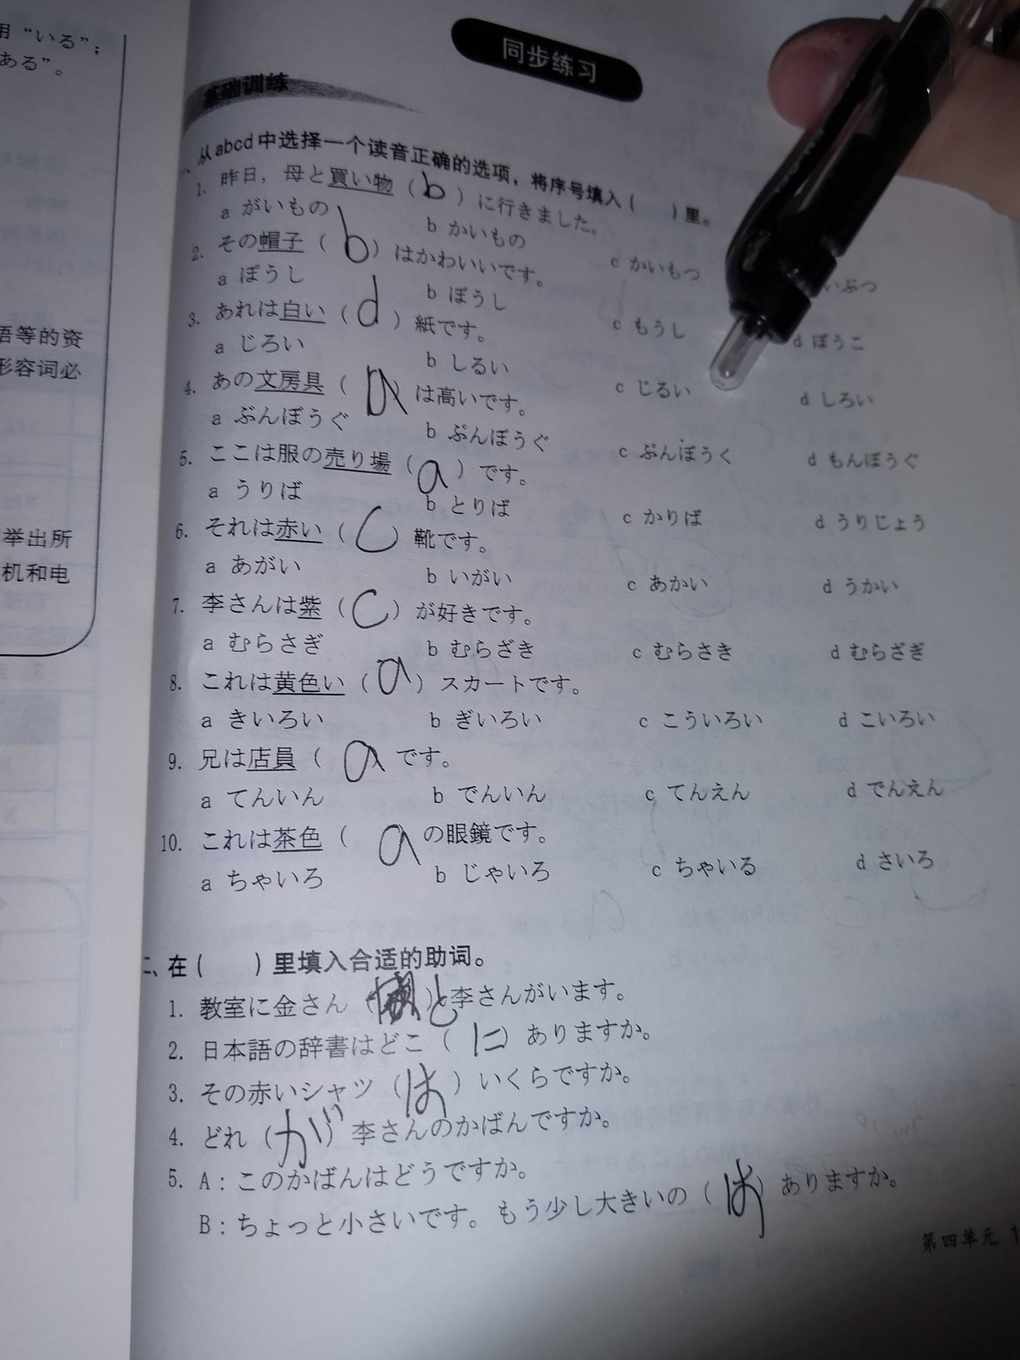 用“いる”；
ある”。
语等的资
形容词必
举出所
机和电
同步练习
基础训练
从abcd中选择一个读音正确的选项，将序号填入（ ）里。
1. 昨日，母と買い物（b）に行きました。
a がいもの b かいもの c かいもつ いぶつ
2. その帽子（b）はかわいいです。
a ぼうし b ぼうし c もうし d ぼうこ
3. あれは白い（d）紙です。
a じろい b しるい c じるい d しろい
4. あの文房具（a）は高いです。
a ぶんぼうぐ b ぷんぼうぐ c ぶんぼうく d もんぼうぐ
5. ここは服の売り場（a）です。
a うりば b とりば c かりば d うりじょう
6. それは赤い（c）靴です。
a あがい b いがい c あかい d うかい
7. 李さんは紫（c）が好きです。
a むらさぎ b むらざき c むらさき d むらざぎ
8. これは黄色い（a）スカートです。
a きいろい b ぎいろい c こういろい d こいろい
9. 兄は店員（a です。
a てんいん b でんいん c てんえん d でんえん
10. これは茶色（a の眼鏡です。
a ちゃいろ b じゃいろ c ちゃいる d さいろ
二、在（ ）里填入合适的助词。
1. 教室に金さん（と）李さんがいます。
2. 日本語の辞書はどこ（に）ありますか。
3. その赤いシャツ（は）いくらですか。
4. どれ（が）李さんのかばんですか。
5. A：このかばんはどうですか。
B：ちょっと小さいです。もう少し大きいの（は）ありますか。
第四单元 1